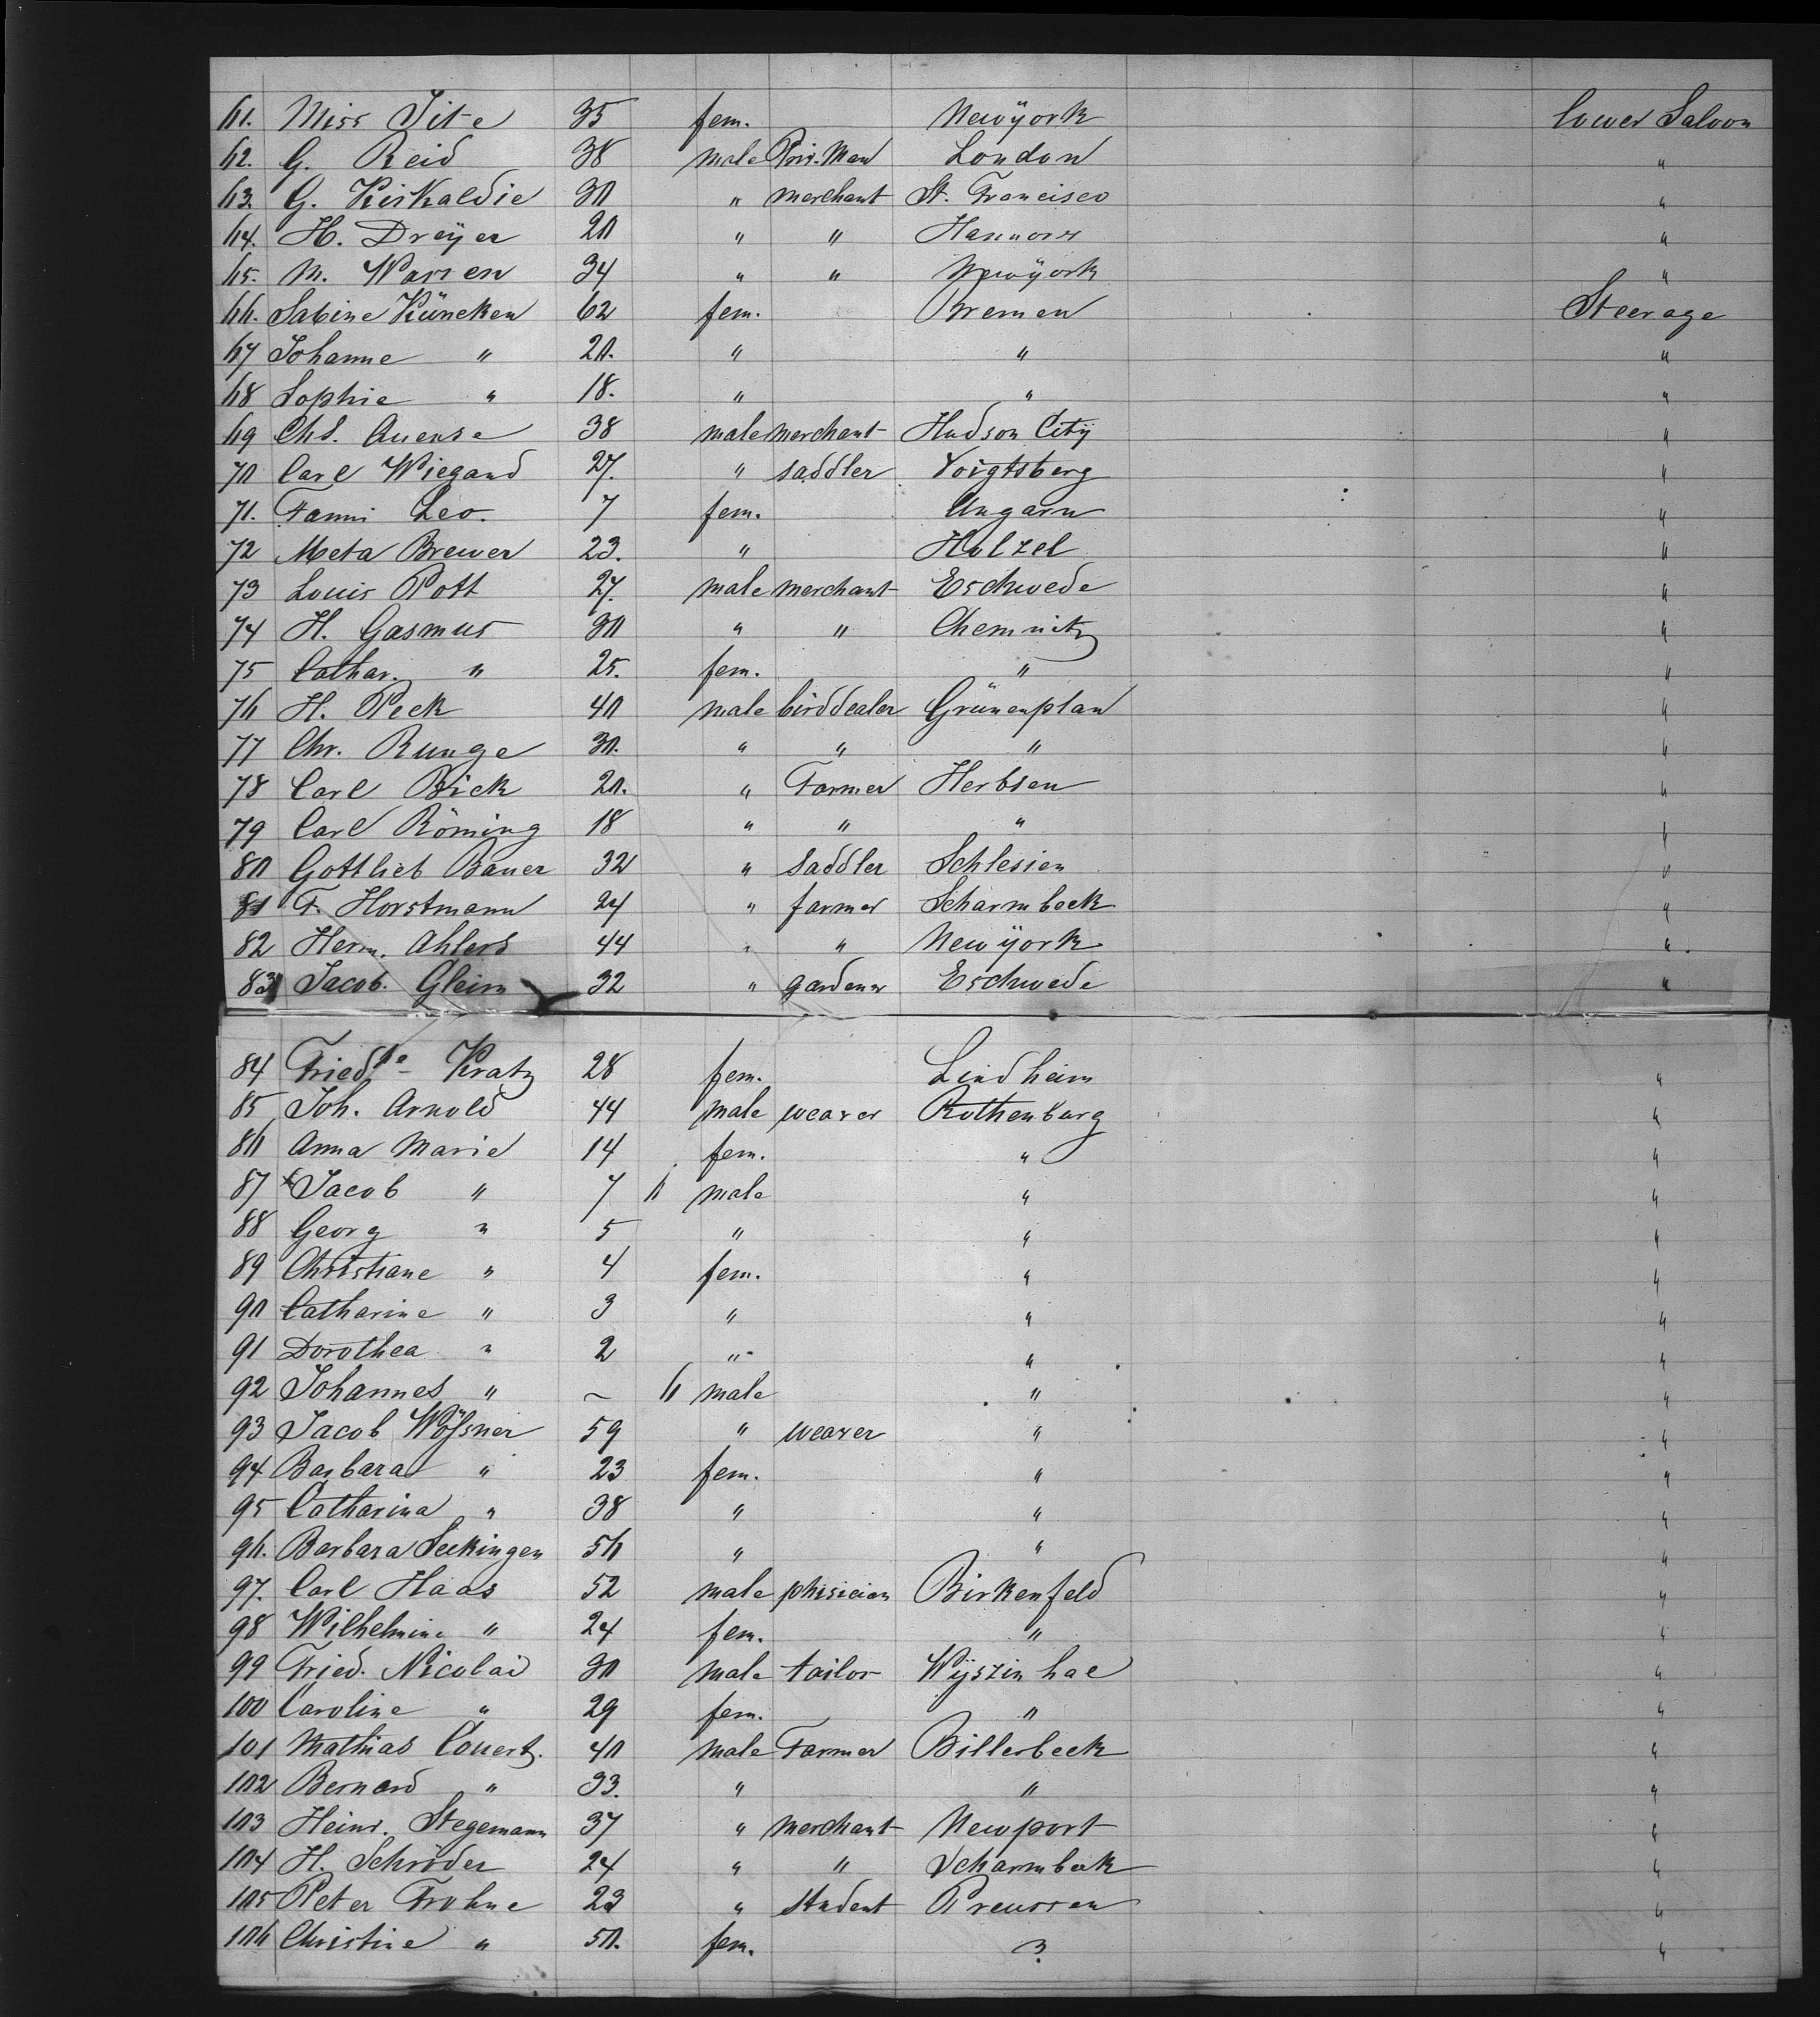 61. Miss Tite 35 fem. Newÿork lower Saloon
62. G. Reid 38 male Priv. Man London "
63. G. Kirkaldie 30 " merchant St. Francisco "
64. H. Dreÿer 20 " " Hannover "
65. M. Warren 34 " " Newÿork "
66. Sabine Küncken 62 fem. Bremen Steerage
67 Johanne " 20. " " "
68 Sophie " 18. " " "
69 Chd. Quense 38 male merchant Hudson Citÿ "
70 Carl Wiegand 27. " saddler Voigtsberg "
71. Fanni Leo. 7 fem. Ungarn "
72 Meta Brewer 23. " Holzel "
73 Louis Pott 27. male merchant Eschwede "
74 H. Gasmus 30 " " Chemnitz "
75 Cathar. " 25. fem. " "
76 H. Peck 40 male birddealer Grünenplan "
77 Chr. Runge 30. " " " "
78 Carl Bick 20. " Farmer Herbsen "
79 Carl Röming 18 " " " "
80 Gottlieb Bauer 32 " saddler Schlesien "
81 F. Horstmann 24 " farmer Scharmbeck "
82 Herm. Ahlers 44 " " New ÿork "
83 Jacob. Gleim 32 " gardener Eschwede "
84 Fried.ke Kratz 28 fem. Lindheim "
85 Joh. Arnold 44 male weaver Rothenburg "
86 Anna Marie 14 fem. " "
87 x Jacob " 7 6 male " "
88 Georg " 5 " " "
89 Christiane " 4 fem. " "
90 Catharine " 3 " " "
91 Dorothea " 2 " " "
92 Johannes " ~ 6 male " "
93 Jacob Wößner 59 " weaver " "
94 Barbara " 23 fem. " "
95 Catharina " 38 " " "
96. Barbara Seckingen 56 " " "
97. Carl Haas 52 male phisician Birkenfeld "
98 Wilhelmine " 24 fem. " "
99 Fried. Nicolai 30 male tailor Wÿszin hae "
100 Caroline " 29 fem. " "
101 Mathias Conertz. 40 male Farmer Billerbeck "
102 Bernard " 33. " " "
103 Heinr. Stegemann 37 " merchant Newport "
104 H. Schröder 24 " " Scharmbeck "
105 Peter Frohne 23 " student Preussen "
106 Christine " 50. fem. ? "